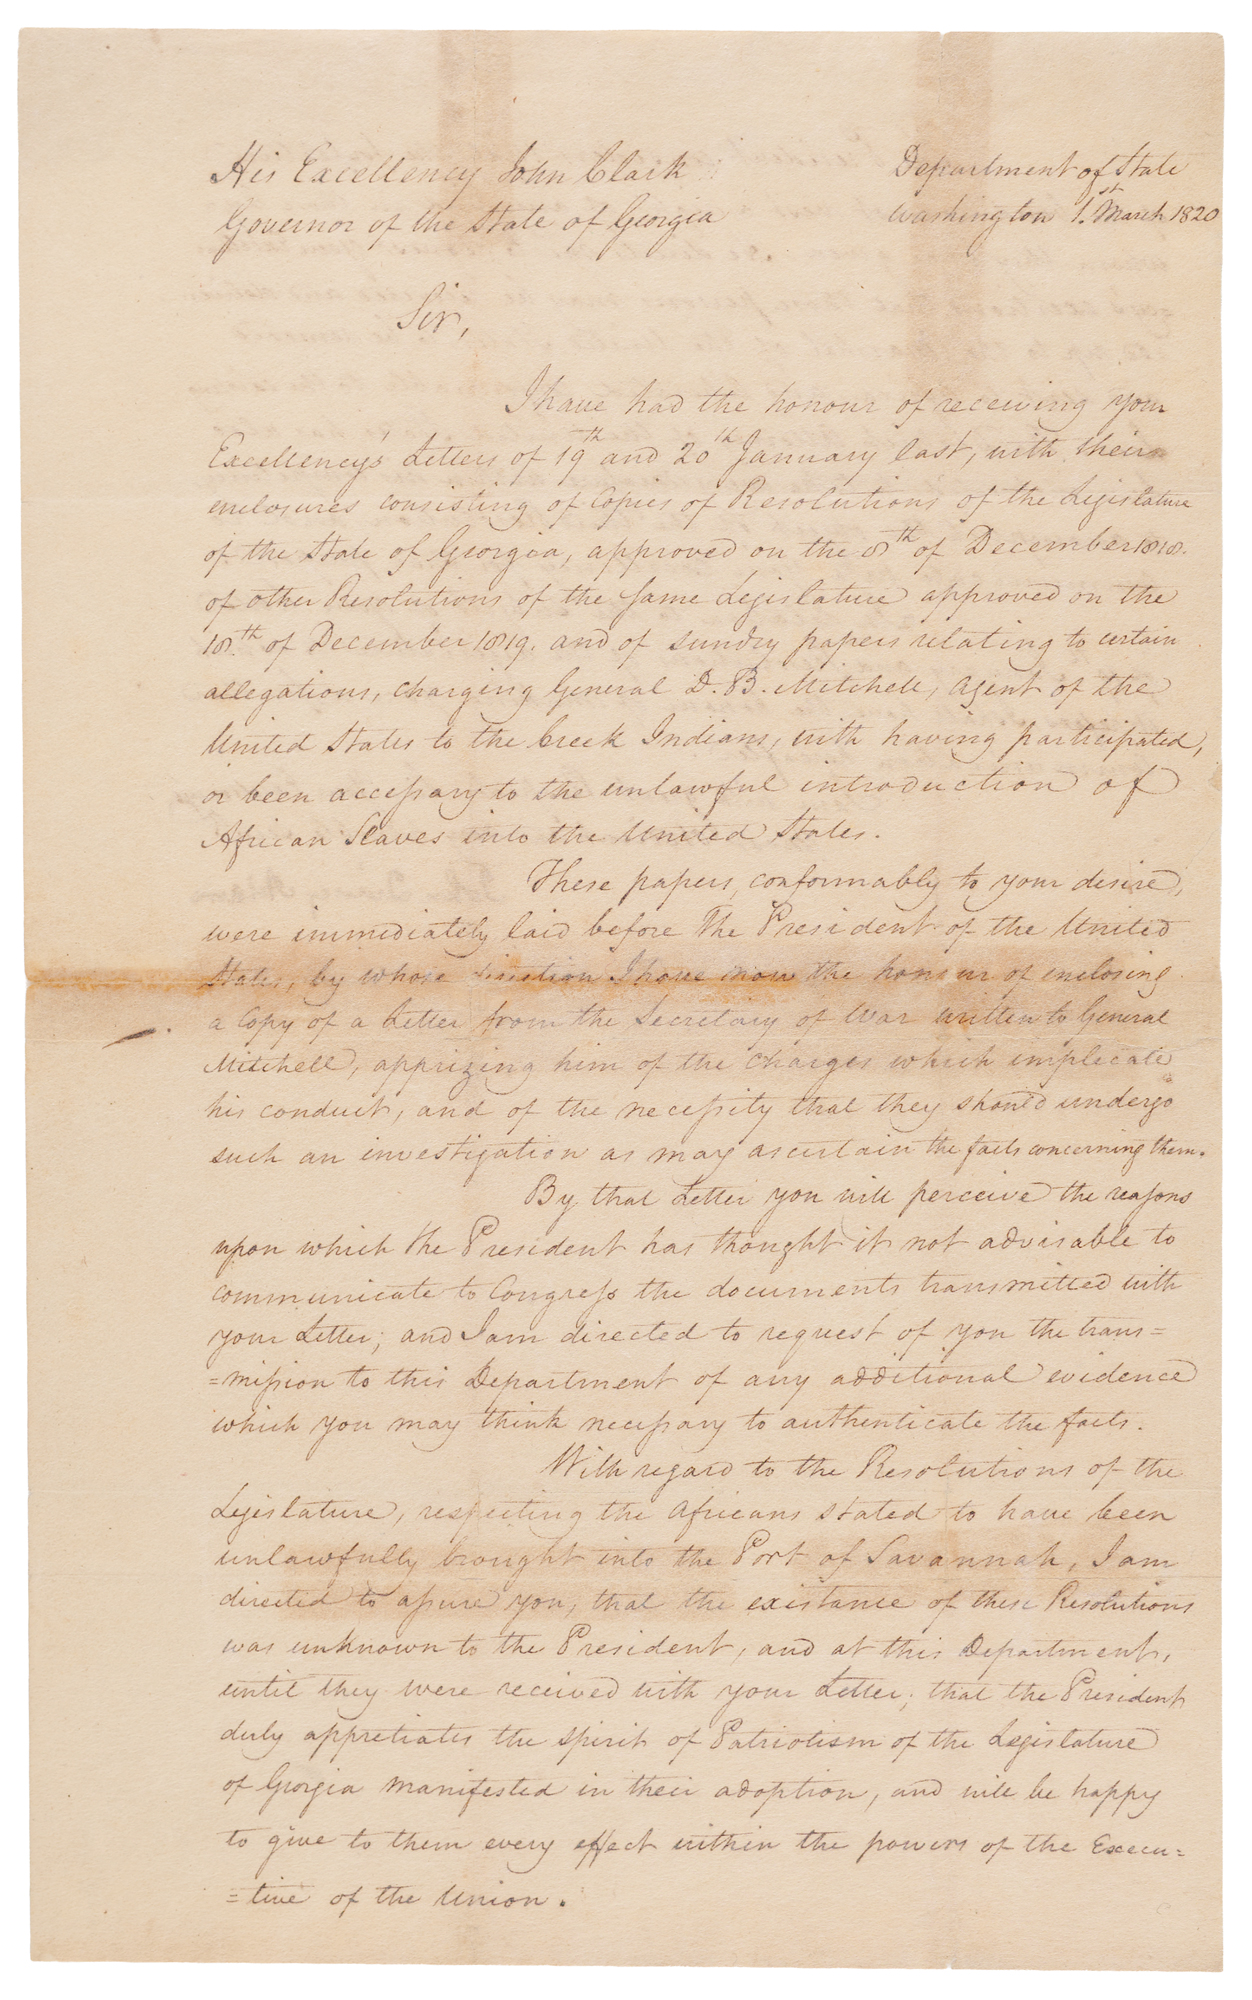 His Excellency John Clark
Governor of the State of Georgia
Department of State
Washington 1.st March 1820
Sir,
I have had the honour of receiving your
Excellency's Letters of 19th and 20th January last, with their
enclosures consisting of Copies of Resolutions of the Legislature
of the State of Georgia, approved on the 8th of December 1818.
of other Resolutions of the same Legislature approved on the
18th. of December 1819. and of sundry papers relating to certain
allegations, charging General D. B. Mitchell, Agent of the
United States to the Creek Indians, with having participated,
or been accessary to the unlawful introduction of
African Slaves into the United States.
These papers, conformably to your desire,
were immediately laid before the President of the United
States, by whose direction I have now the honour of enclosing
a Copy of a Letter from the Secretary of War written to General
Mitchell, apprizing him of the charges which implicate
his conduct, and of the necessity that they should undergo
such an investigation as may ascertain the facts concerning them.
By that Letter you will perceive the reasons
upon which the President has thought it not advisable to
communicate to Congress the documents transmitted with
your Letter; and I am directed to request of you the trans=
=mission to this Department of any additional evidence
which you may think necessary to authenticate the facts.
With regard to the Resolutions of the
Legislature, respecting the Africans stated to have been
unlawfully brought into the Port of Savannah, I am
directed to assure you, that the existance of these Resolutions
was unknown to the President, and at this Department,
until they were received with your Letter; that the President
duly appretiates the spirit of Patriotism of the Legislature
of Georgia manifested in their adoption, and will be happy
to give to them every effect within the powers of the Execu=
=tive of the Union.